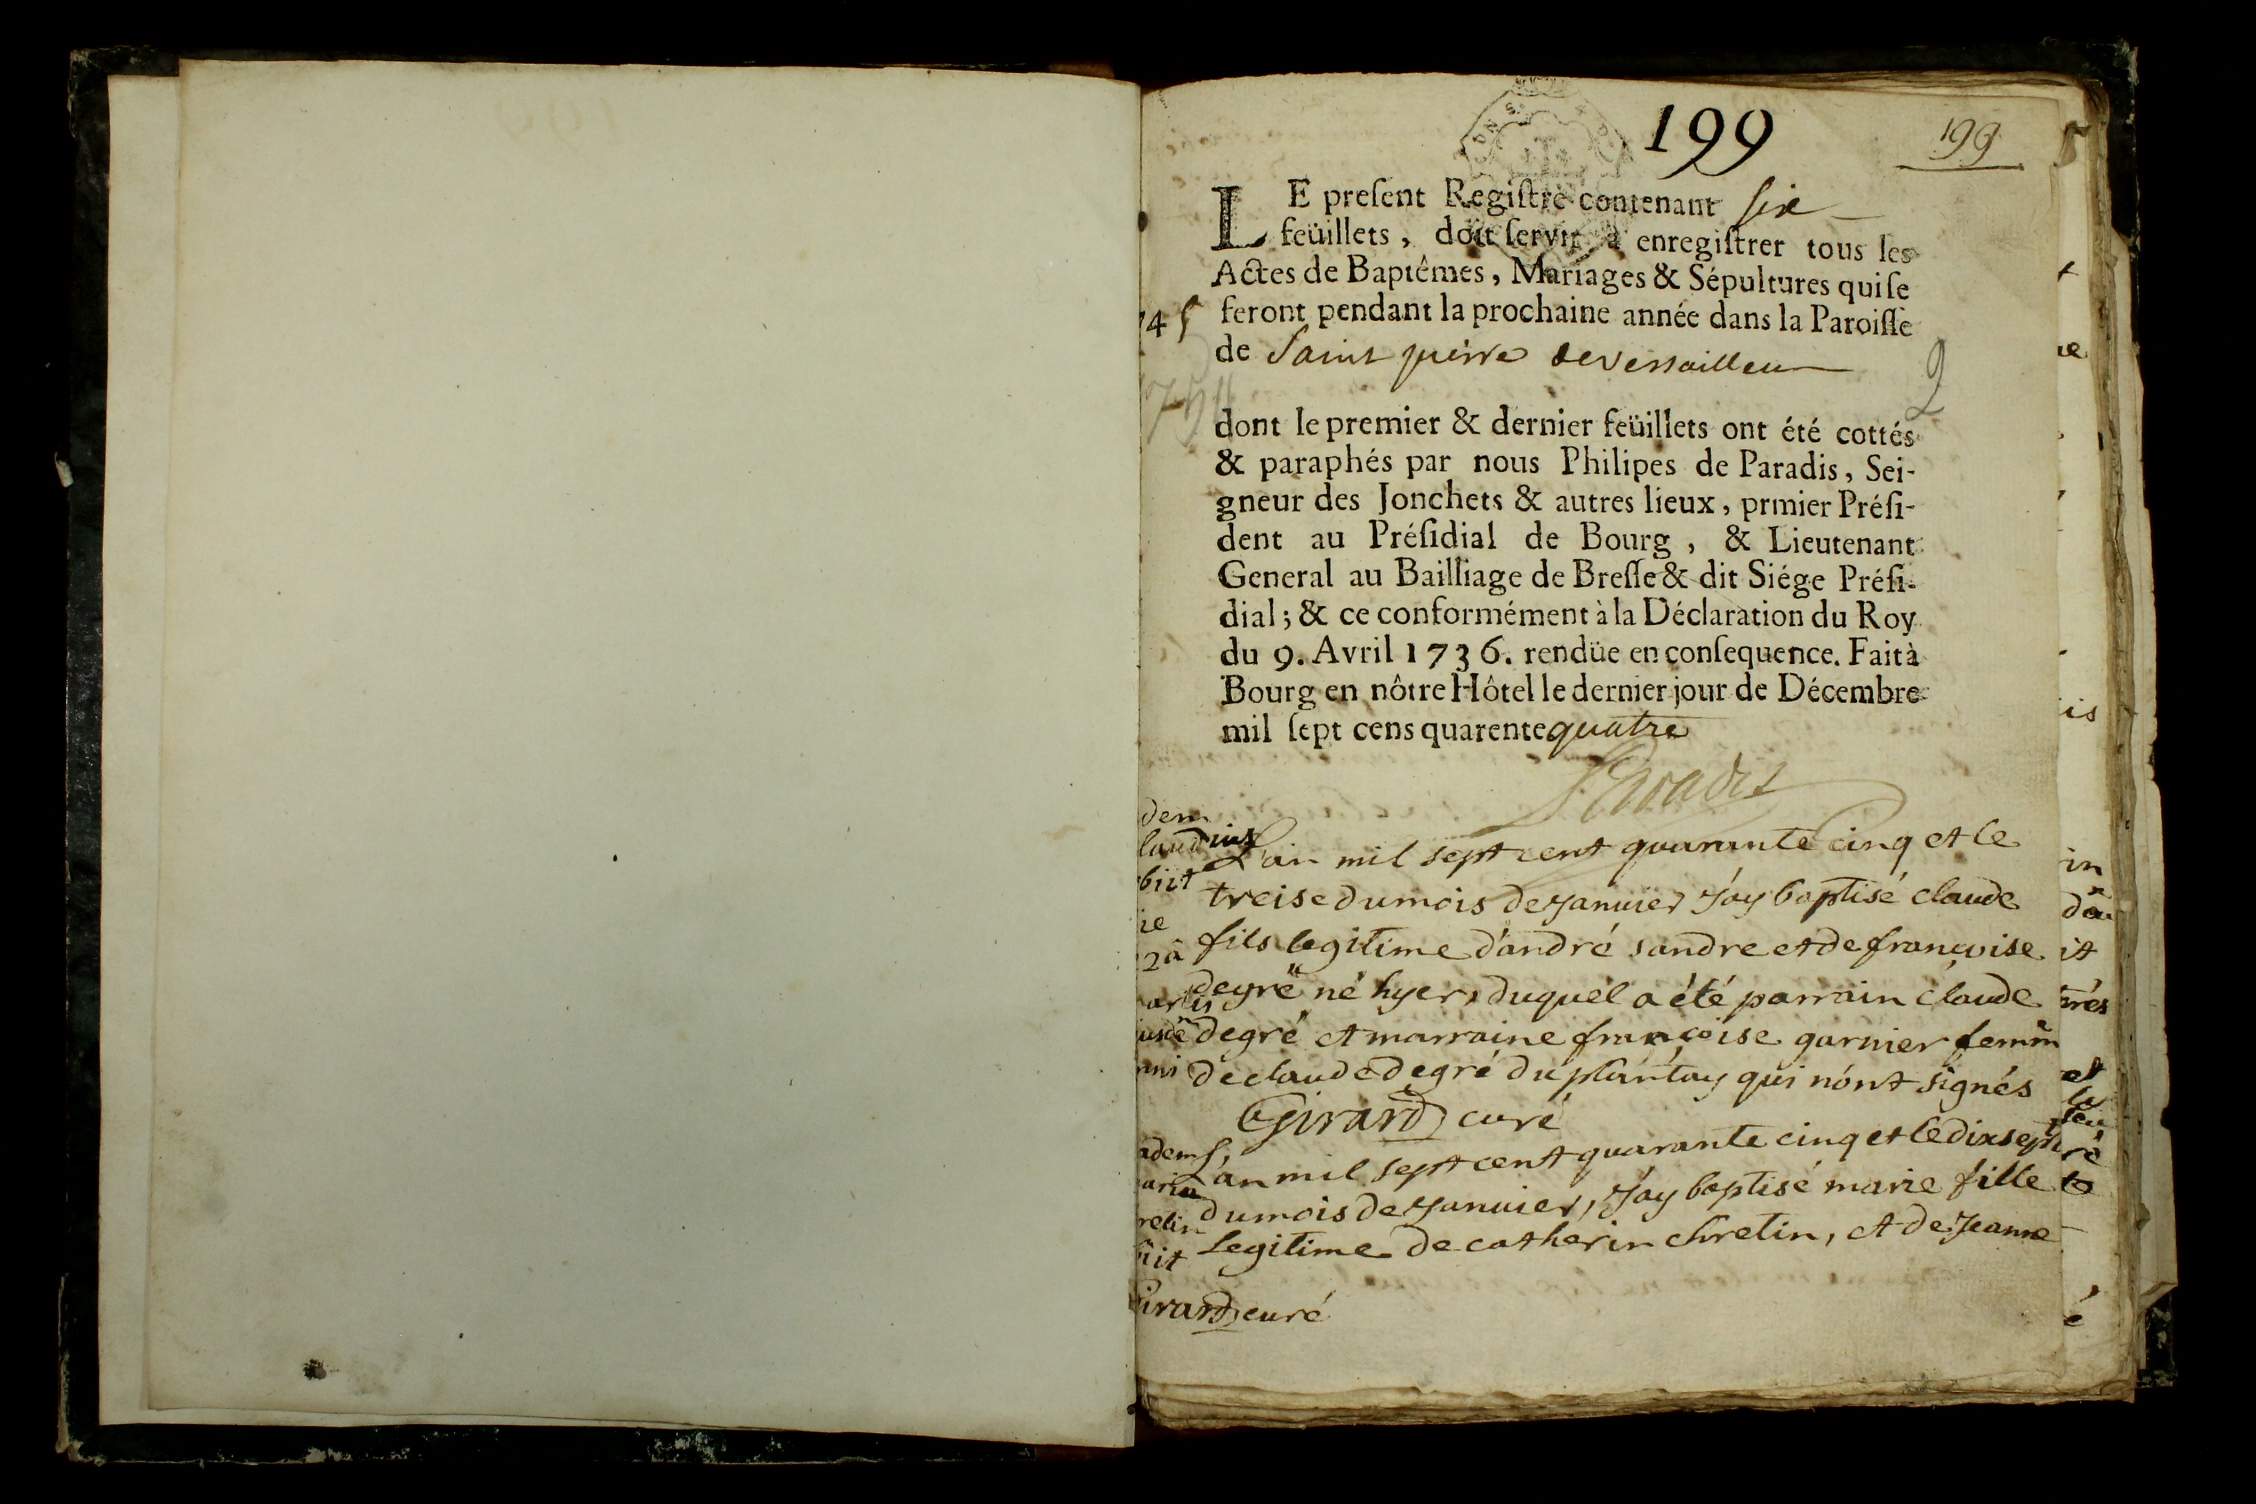 199
199
LE preſent Regiſtre contenant ſix
feüillets, doit ſervir à enregiſtrer tous les
Actes de Baptêmes, Mariages & Sépultures qui ſe
feront pendant la prochaine année dans la Paroiſſe
de Saint pierre de Versailleu
2
dont le premier & dernier feüillets ont été cottés
& paraphés par nous Philipes de Paradis, Sei-
gneur des Jonchets & autres lieux, prmier Préſi-
dent au Préſidial de Bourg, & Lieutenant
General au Bailliage de Breſſe & dit Siége Préſi-
dial; & ce conformément à la Déclaration du Roy
du 9. Avril 1736. rendüe en conſequence. Fait à
Bourg en nôtre Hôtel le dernier jour de Décembre
mil ſept cens quarente quatre
Paradis
L'an mil sept cent quarante cinq et le
treise du mois de Janvier J'ay baptisé claude
fils legitime d'andré sandre et de françoise
degré né hyer, duquel a été parrain claude
degré et marraine françoise garnier femm
de claude degré du plantay qui n'ont signés
Girard curé
L'an mil sept cent quarante cinq et le dix sept
du mois de Janvier, J'ay baptisé marie fille
legitime de catherin chretin, et de Jeanne
irard curé